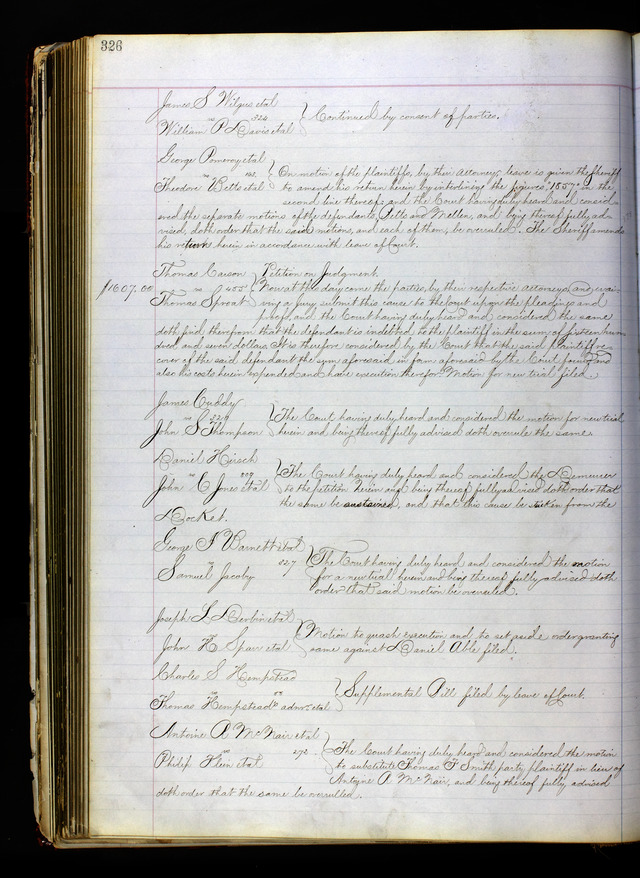 326
James S Wilgus etal
vs 324 } Continued by consent of parties.
William P Davis etal
George Pomeroy etal
vs } On motion of the plaintiffs, by their Attorney, leave is given the Sheriff
Theodore Betts etal to amend his return herein by interlining the figures "1857" in the
second line thereof; and the Court having duly heard and consid-
ered the separate motions of the defendants, Betts and Mellen, and being thereof fully ad-
vised, doth order that the said motions, and each of them, be overruled. The Sheriff amends
his return herein in accordance with leave of Court.
Thomas Carson } Petition on Judgment.
$1607.00 vs 455 Now at this day come the parties, by their respective attorneys, and wai-
Thomas Sproat ving a Jury submit this cause to the Court upon the pleadings and
proofs, and the Court having duly heard and considered the same
doth find therefrom that the defendant is indebted to the plaintiff in the sum of sixteen hun-
dred and seven dollars. It is therefore considered by the Court that the said plaintiff re-
cover of the said defendant the sum aforesaid in form aforesaid by the Court found and
also his costs herein expended and have execution therefor. Motion for new trial filed.
James Cuddy
vs 329 } The Court having duly heard and considered the motion for new trial
John S Thompson herein and being thereof fully advised doth overrule the same.
Daniel Hirsch
vs } The Court having duly heard and considered the Demurrer
John C Jones etal to the petition herein and being thereof fully advised doth order that
the same be sustained, and that this cause be stricken from the
Docket.
George N Barnett etal
vs 527 } The Court having duly heard and considered the motion
Samuel Jacoby for a new trial herein and being thereof fully advised doth
order that said motion be overruled.
Joseph L etal
} Motion to quash execution and to set aside order granting
John H Sparr etal same against Daniel Able filed.
Charles S Hempstead
vs } Supplemental Bill filed by leave of Court.
Thomas Hempstead's admr. etal
Antoine A McNair etal
vs 272 } The Court having duly heard and considered the motion
Philip Klein etal to substitute Thomas F Smith party plaintiff in lieu of
Antoyne A McNair, and being thereof fully advised
doth order that the same be overruled.